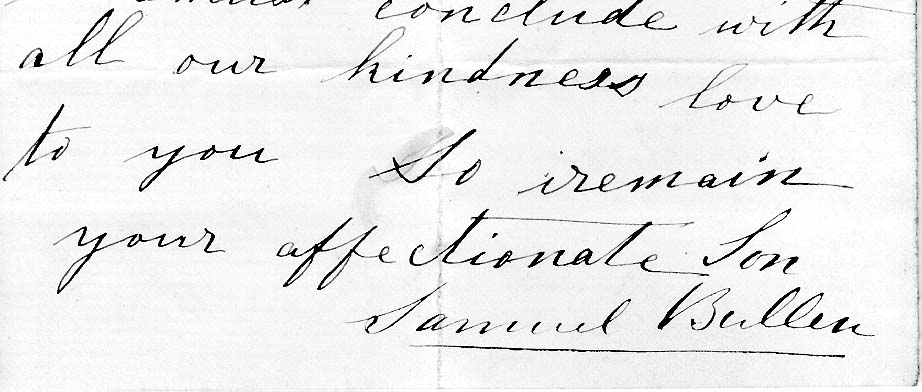 conclude with
all our kindness love
to you So iremain
your affectionate Son
Samuel Bullen